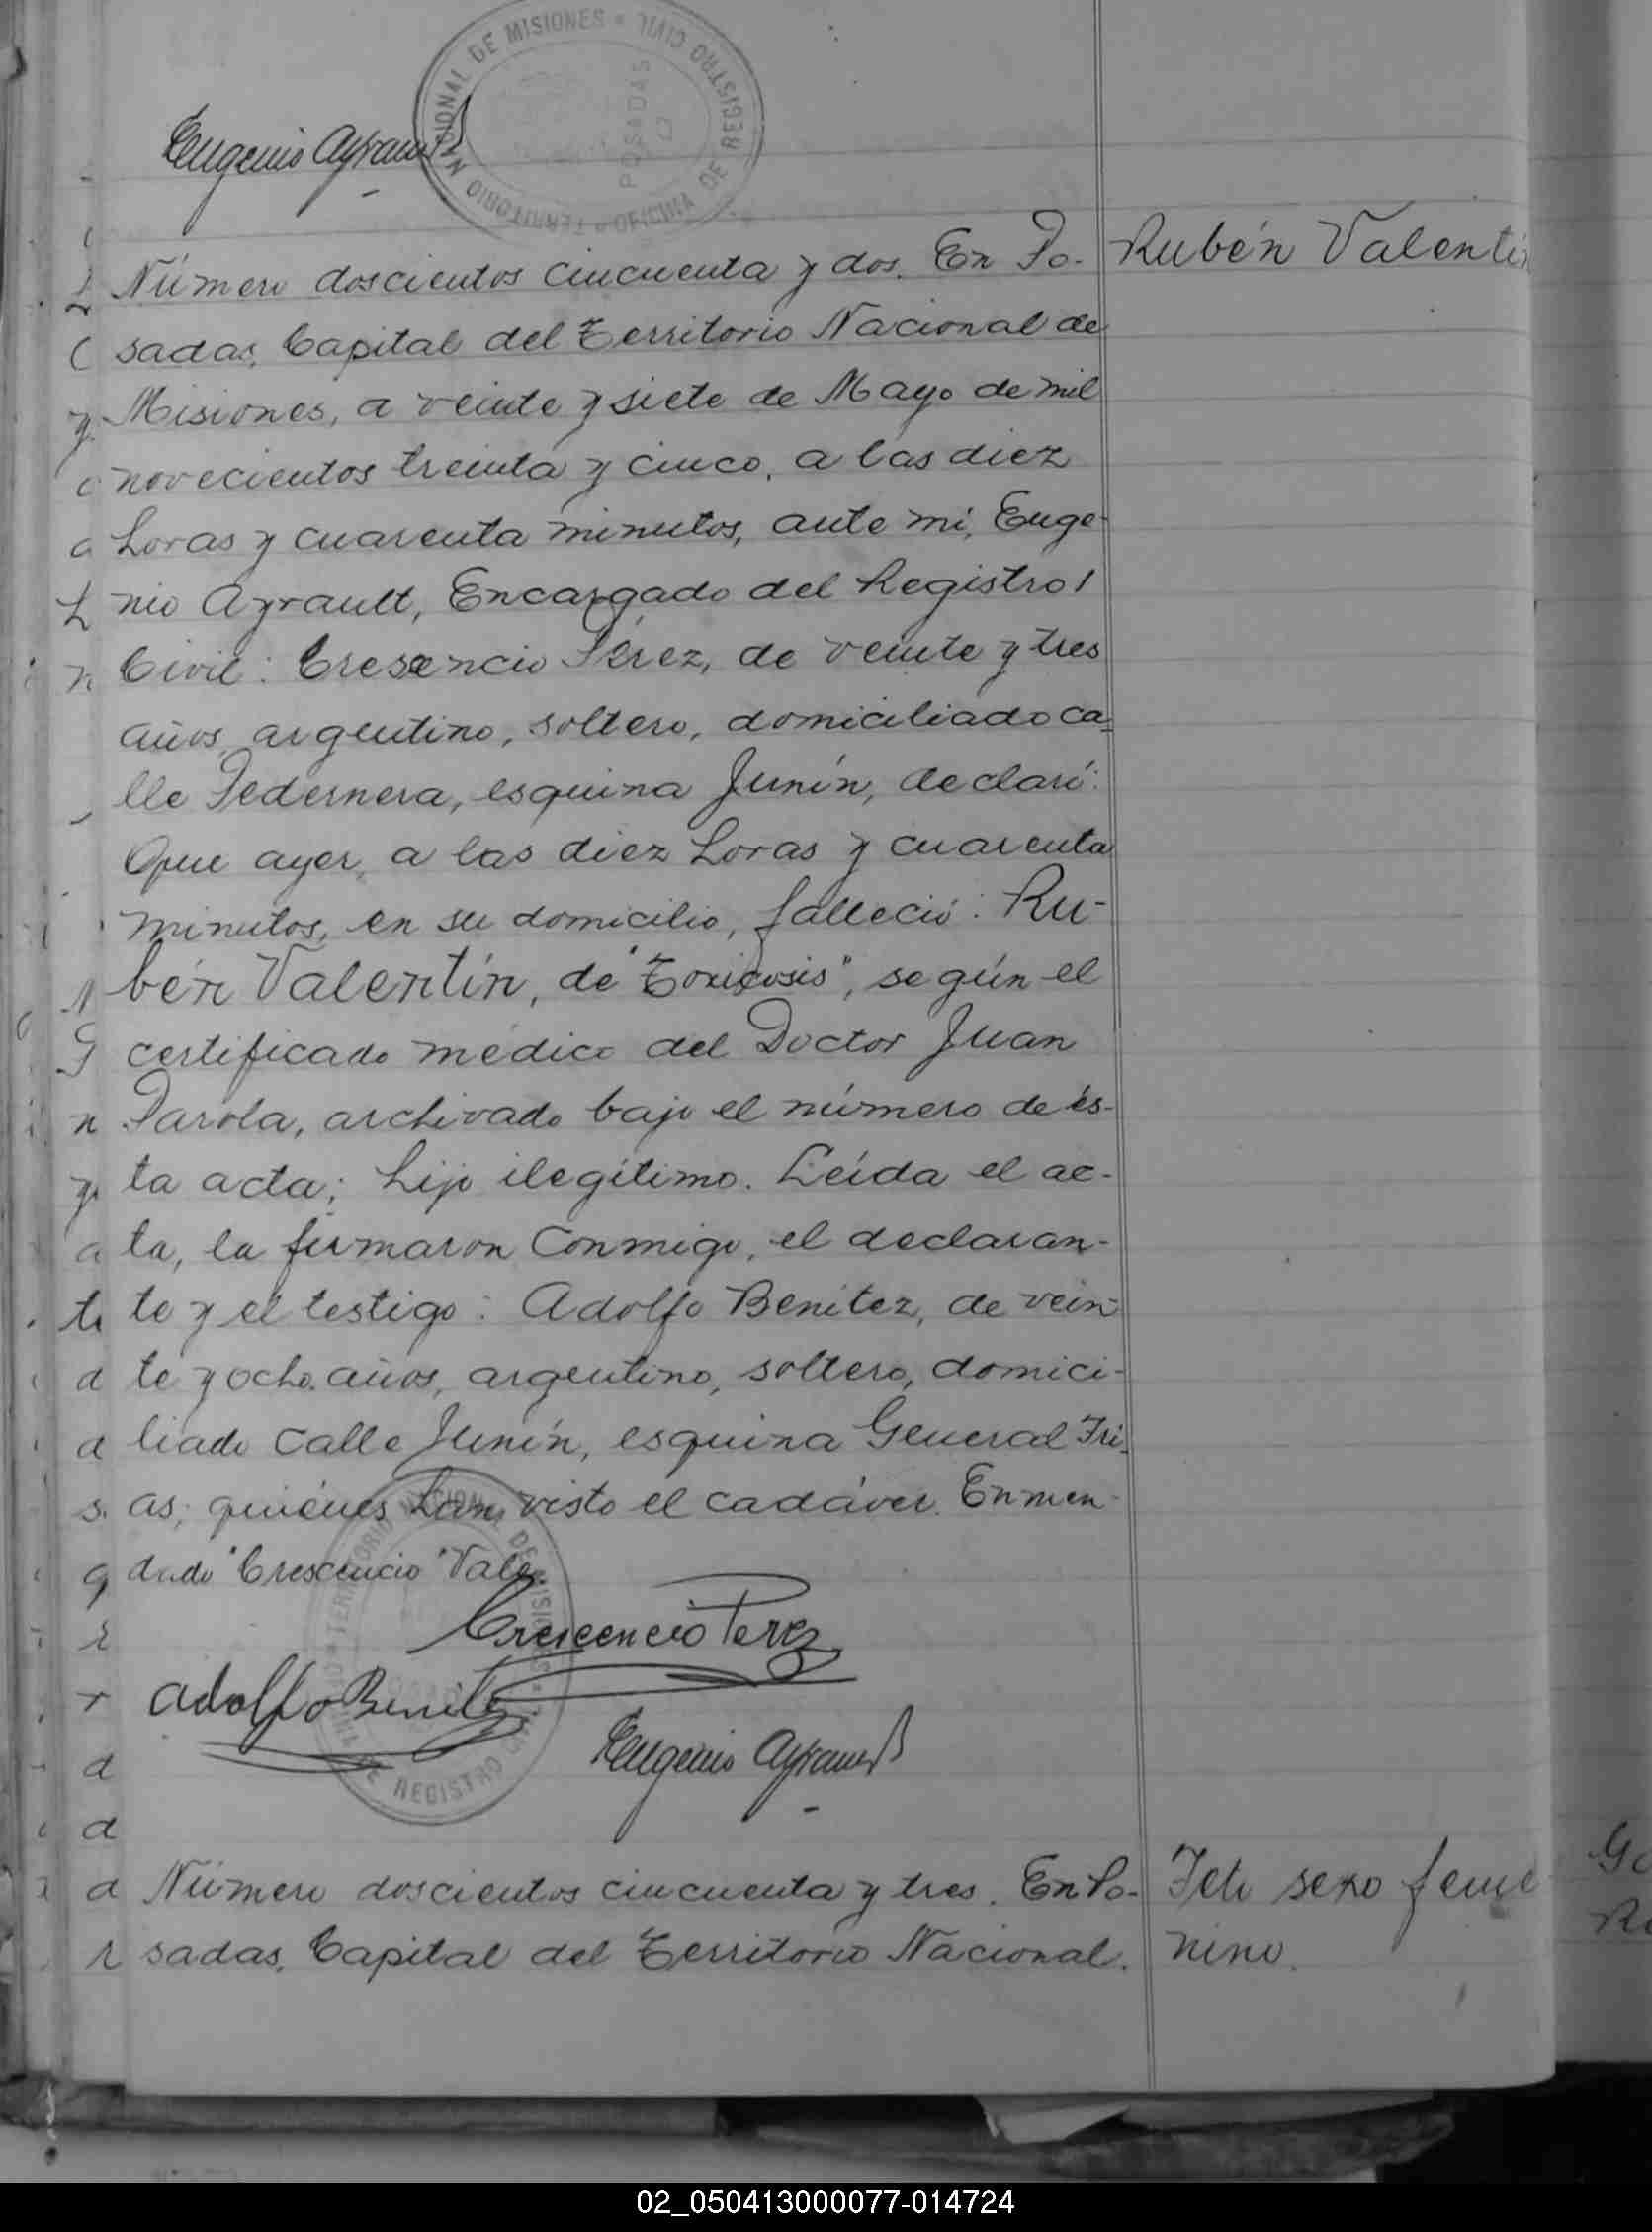 TERRITORIO NACIONAL DE MISIONES * OFICINA DE REGISTRO CIVIL
POSADAS
Eugenio Ayrault
Número doscientos cincuenta y dos. En Po-
Rubén Valentín
sadas, Capital del Territorio Nacional de
Misiones, a veinte y siete de Mayo de mil
novecientos treinta y cinco, a las diez
horas y cuarenta minutos, ante mí, Euge-
nio Ayrault, Encargado del Registro
Civil: Cresencio Pérez, de veinte y tres
años, argentino, soltero, domiciliado ca-
lle Pedernera, esquina Junín, declaró:
Que ayer, a las diez horas y cuarenta
minutos, en su domicilio, falleció: Ru-
bén Valentín, de "Toxicosis", según el
certificado médico del Doctor Juan
Parola, archivado bajo el número de és-
ta acta; hijo ilegítimo. Leída el ac-
ta, la firmaron conmigo, el declaran-
te y el testigo: Adolfo Benítez, de vein-
te y ocho años, argentino, soltero, domici-
liado calle Junín, esquina General Frí-
as; quiénes han visto el cadáver. Enmen-
dado "Crescencio" Vale.
Crescencio Perez
Adolfo Benitez
Eugenio Ayrault
Número doscientos cincuenta y tres. En Po-
Feto sexo feme
sadas, Capital del Territorio Nacional.
nino.
02_050413000077-014724